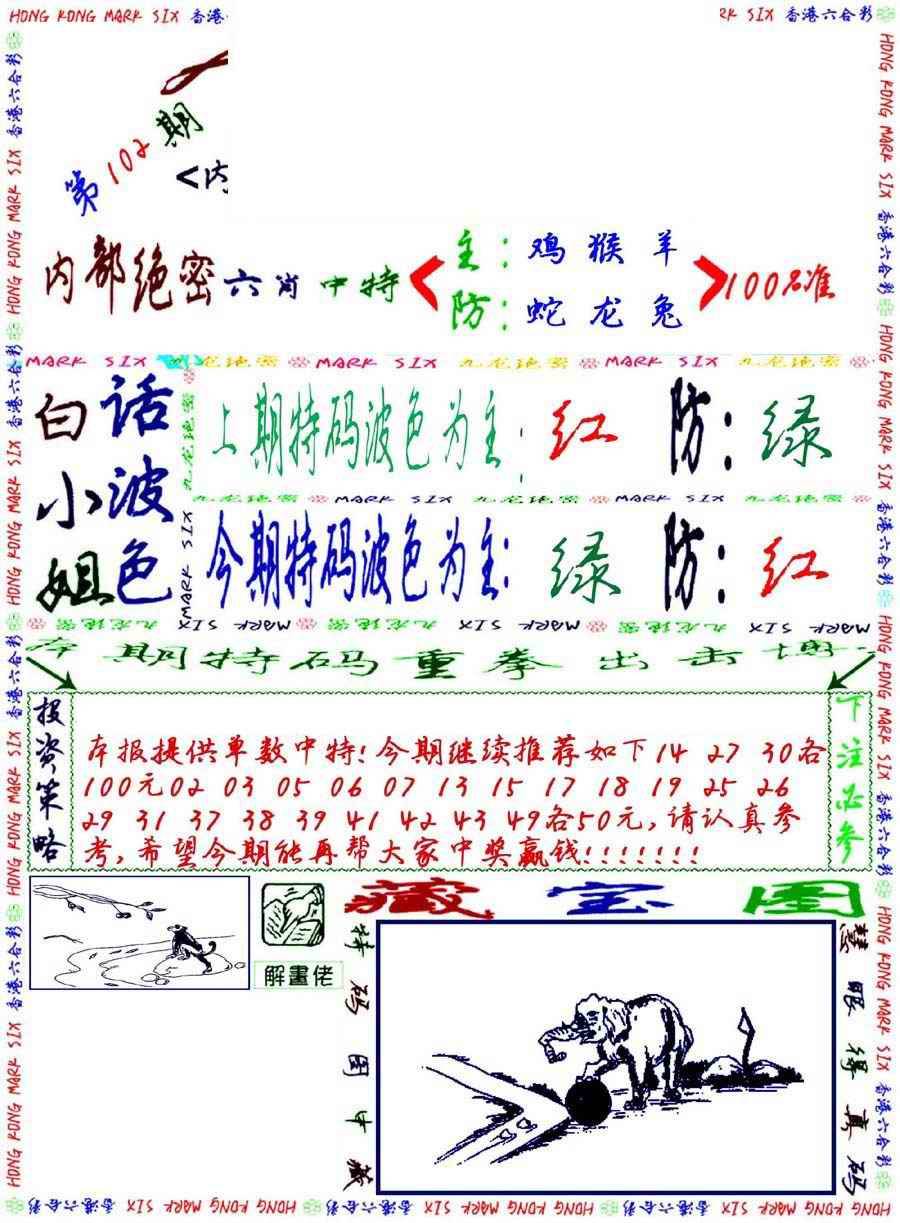 HONG KONG MARK SIX 香港
RK SIX 香港六合彩
第102期
<内
内部绝密六肖中特
主：鸡猴羊
防：蛇龙兔
100%准
MARK SIX 九龙绝密 MARK SIX 九龙绝密 MARK SIX 九龙绝密
白话
小波
姐色
上期特码波色为主：红 防：绿
九龙绝密 MARK SIX 九龙绝密 MARK SIX
今期特码波色为主：绿 防：红
九龙绝密 MARK SIX 九龙绝密 MARK SIX 九龙绝密 MARK SIX
本期特码重拳出击
投资策略
本报提供单数中特!今期继续推荐如下14 27 30各
100元02 03 05 06 07 13 15 17 18 19 25 26
29 31 37 38 39 41 42 43 49各50元,请认真参
考,希望今期能再帮大家中奖赢钱!!!!!!!
下注必参
解畫佬
藏宝图
特码图中藏
慧眼得真码
HONG KONG MARK SIX 香港六合彩